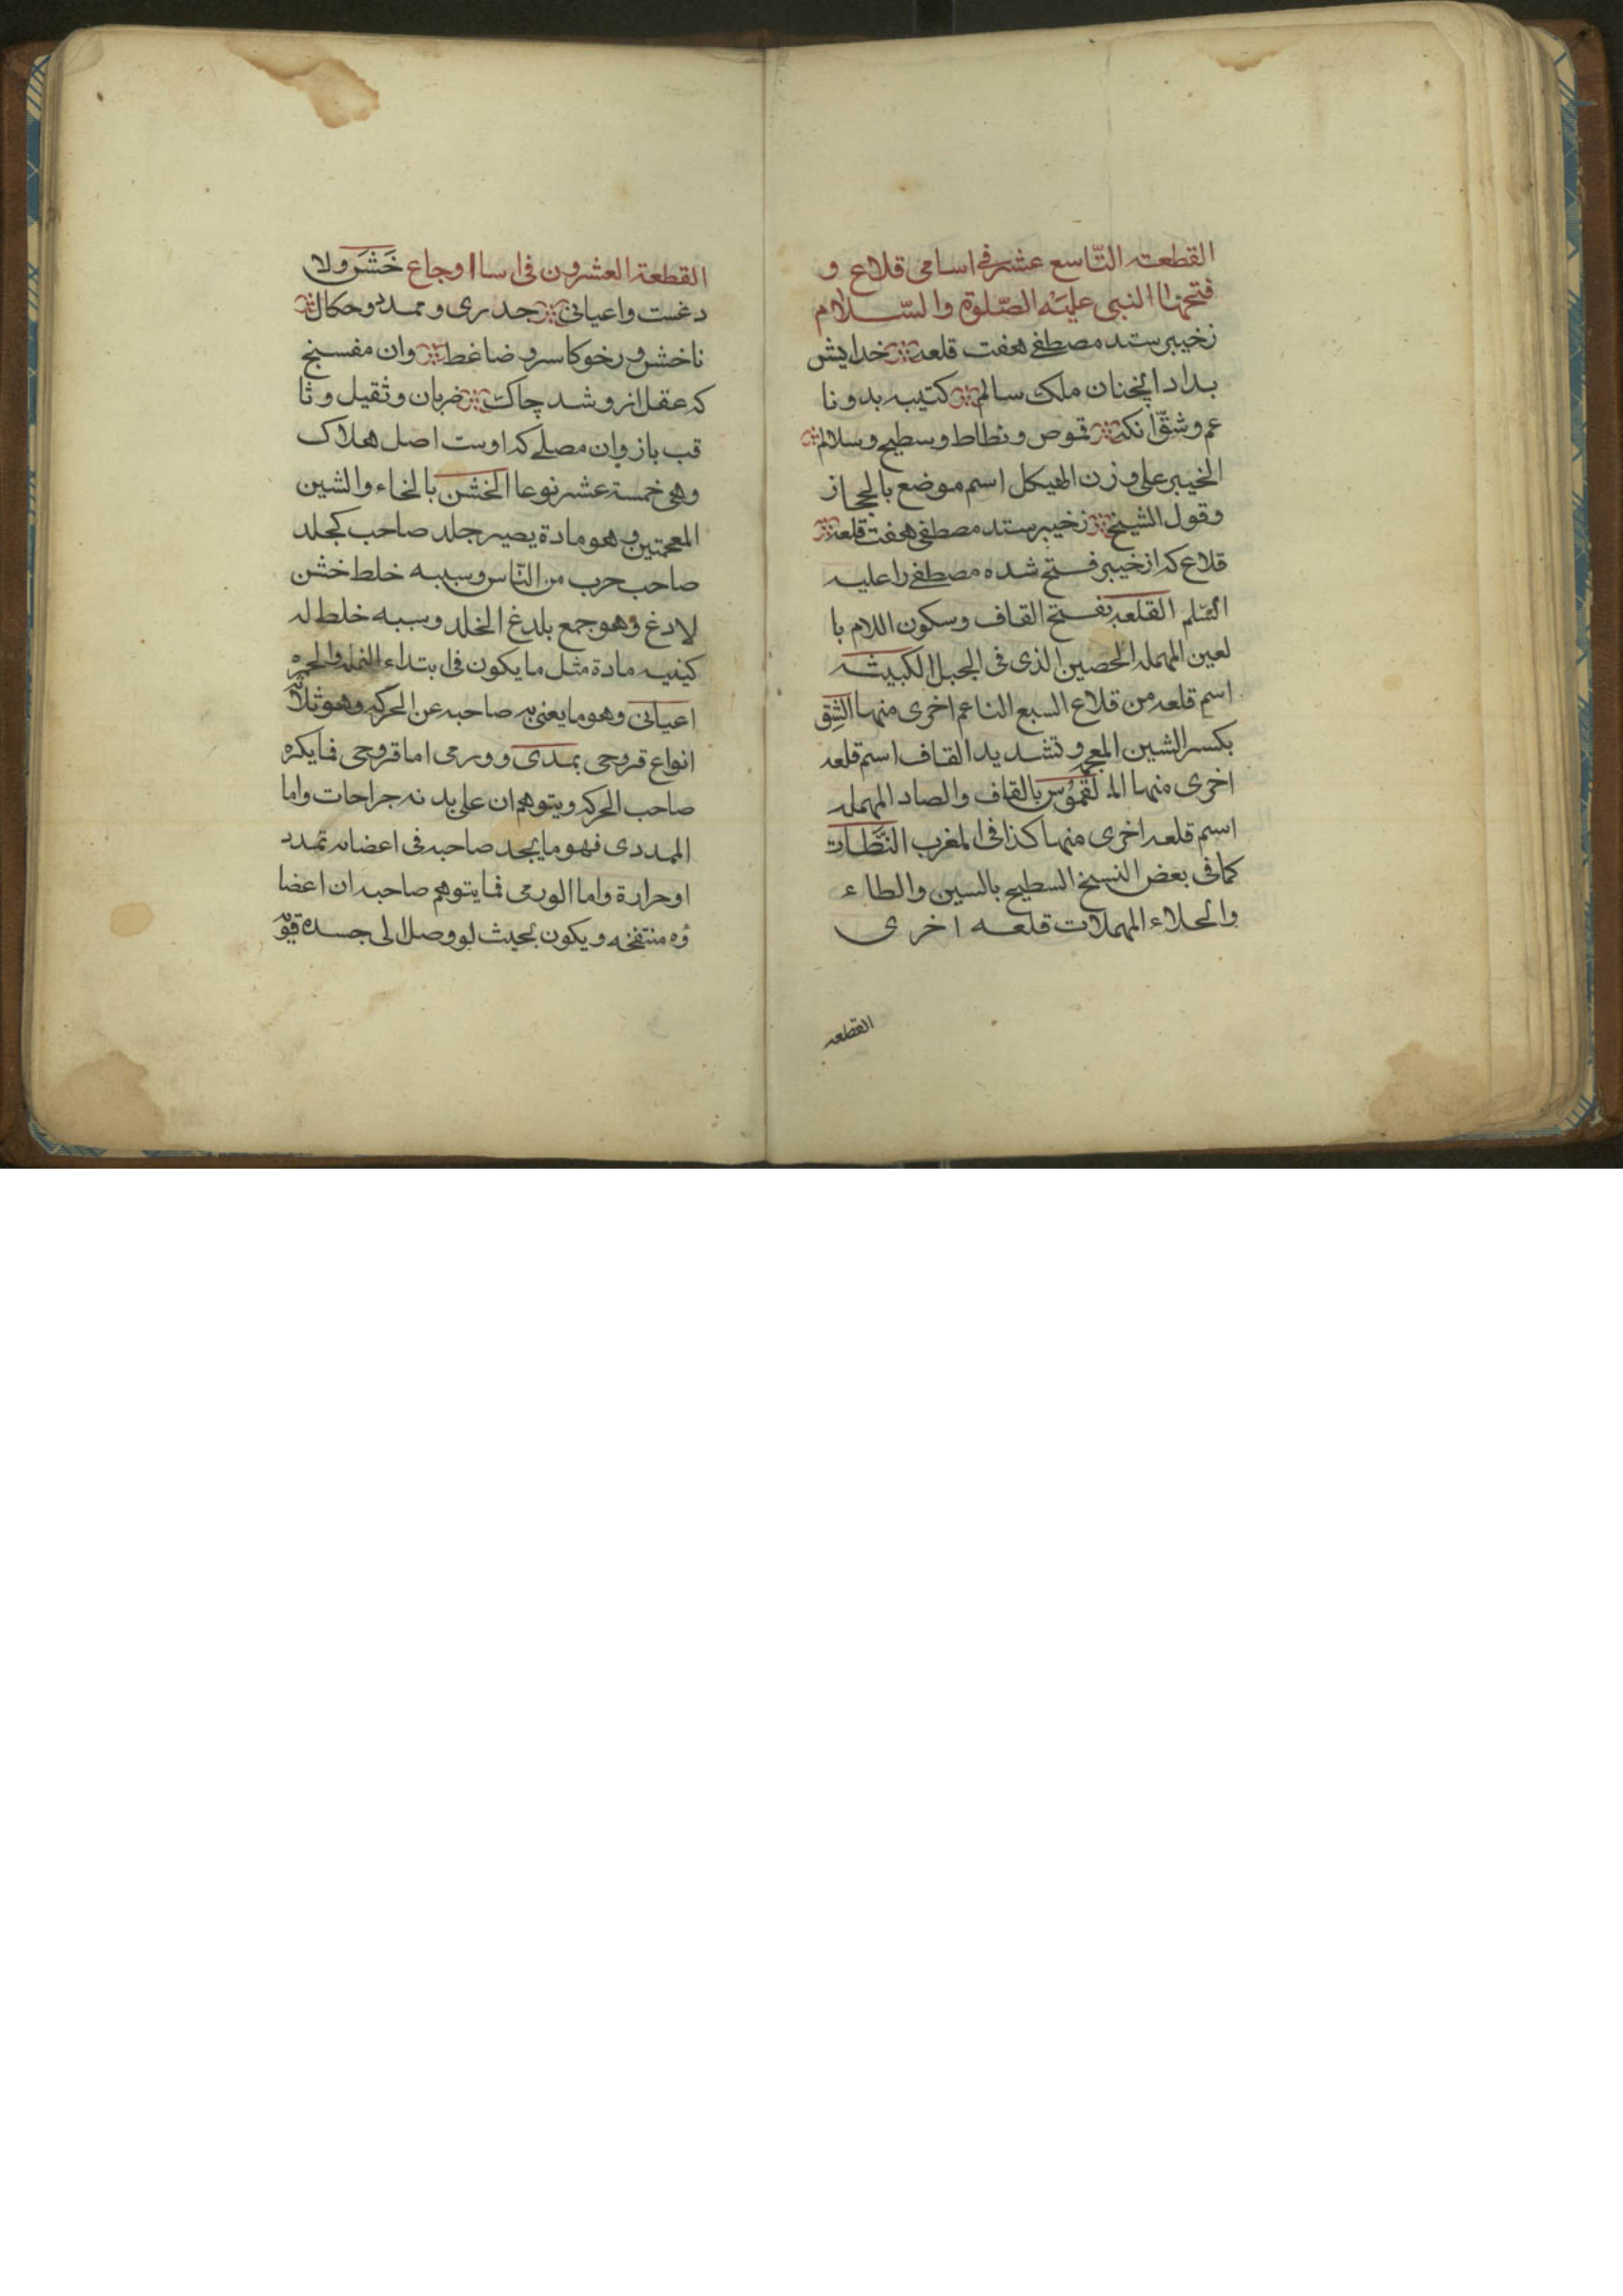 القطعت التّاسع عشر فی اسامی قلاع و
فتحها النبی علیَه الصّلوة والسّلام
زخیبر ستد مصطفی هفت قلعه خدایش
بداد انچنان ملک سالم کتیبه بد و نا
عم و شقّ انکه قموص و نطاط و سطیح و سلالم
الخیبر علی وزن الهیکل اسم موضع بالحجاز
وقول الشیخ زخیبر ستد مصطفی هفت قلعه
قلاع که از خیبر فتح شده مصطفی را علیه
السّلم القلعه بفتح القاف وسکون اللام با
لعین المهمله الحصین الذی فی الجبل الکبیثه
اسم قلعه من قلاع السبع الناعم اخری منها الشِق
بکسر الشین المعجمه وتشدید القاف اسم قلعه
اخری منها القموُس بالقاف والصاد المهمله
اسم قلعه اخری منها کذا فی المغرب النَّطات
کما فی بعض النسخ السطیح بالسین والطاء
والحلاء المهملات قلعه اخری
القطعه
القطعة العشرون فی اسا اوجاع خَشَن ولا
دغست واعیانی جدری و ممدد و حکال
ناخش و رخو کاسر و ضاغط وان مفسخ
که عقل از و شد چاک ضربان وثقیل و ثا
قب باز وان مصلی که اوست اصل هلاک
وهی خمسة عشر نوعا الخشن بالخاء والشین
المعجمتین وهو مادة یصیر جلد صاحب کجلد
صاحب حرب من النّاس وسببه خلط خشن
لادغ وهو جمع بلدغ الخلد وسببه خلط له
کیفیه مادة مثل ما یکون فی ابتداء النمله والجمره
اعیانی وهو ما یعنی به صاحبه عن الحرکه وهو ثلاثه
انواع قروحی بمددی و ورمی اما قروحی فما یکره
صاحب الحرکه ویتوهم ان علی بدنه جراحات واما
الممددی فهو ما یجد صاحبه فی اعضانه تمدد
اوحرارة واما الورمی فما یتوهم صاحبه ان اعضا
ؤه منتفخه ویکون بحیث لو وصل الی جسده قوّه